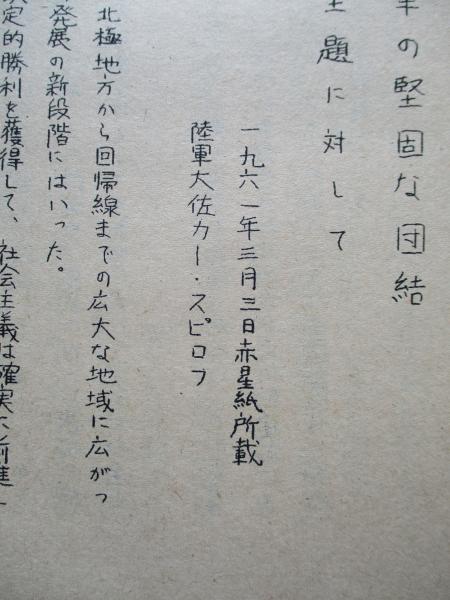 の堅固な団結
主題に対して
一九六一年三月三日赤星紙所載
陸軍大佐カー・スピロフ
北極地方から回帰線までの広大な地域に広がっ
発展の新段階にはいった。
決定的勝利を獲得して、社会主義は確実に前進し